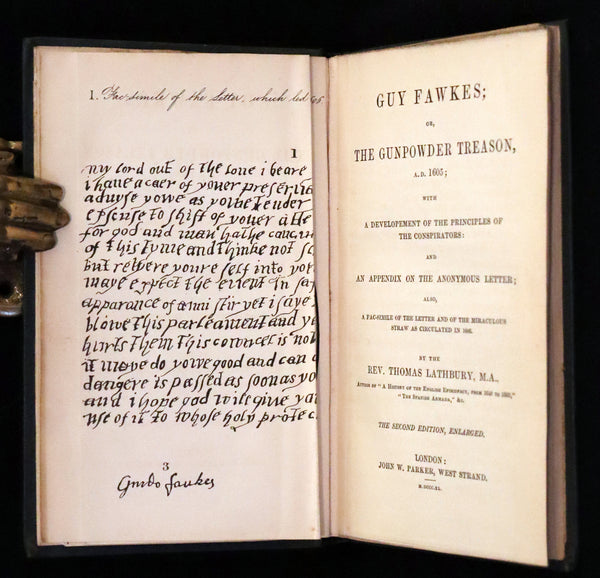 1. Fac-simile of the letter, which led
1
my lord out of the loue i beare
i haue a caer of youer preseru
aduyse yowe as yowe tender
excuse to shift of youer atte
for god and man hathe concu
of this tyme and thinke not s
but retyere youre self into yo
maye expect the event in saf
apparance of anni stir yet i saye
blowe this parleament and ye
hurts them this cowncel is not
it maye do yowe good and can d
dangere is passed as soon as yo
and i hope god will give you
use of it to whose holy protec
3
Guido faukes
GUY FAWKES;
OR,
THE GUNPOWDER TREASON,
A.D. 1605;
WITH
A DEVELOPEMENT OF THE PRINCIPLES OF
THE CONSPIRATORS:
AND
AN APPENDIX ON THE ANONYMOUS LETTER;
ALSO,
A FAC-SIMILE OF THE LETTER AND OF THE MIRACULOUS
STRAW AS CIRCULATED IN 1606.
BY THE
REV. THOMAS LATHBURY, M.A.,
AUTHOR OF "A HISTORY OF THE ENGLISH EPISCOPACY, FROM
"THE SPANISH ARMADA," &c.
THE SECOND EDITION, ENLARGED.
LONDON:
JOHN W. PARKER, WEST STRAND.
M.DCCC.XL.